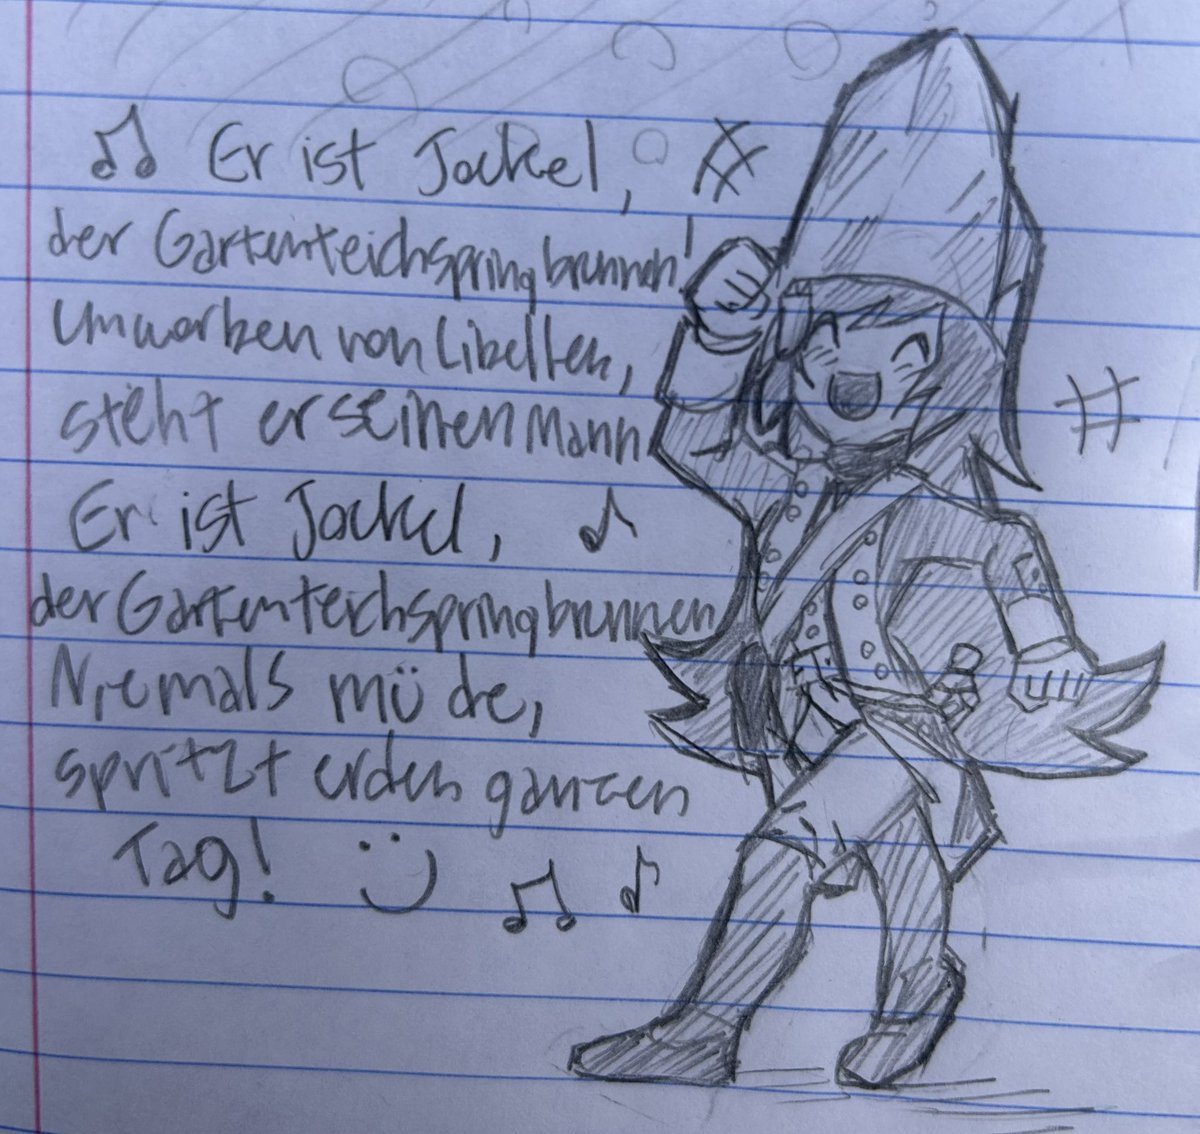 Er ist Jockel,
der Gartenteichspringbrunnen!
Umworben von Libellen,
steht er seinen Mann
Er ist Jockel,
der Gartenteichspringbrunnen
Niemals müde,
spritzt er den ganzen
Tag!